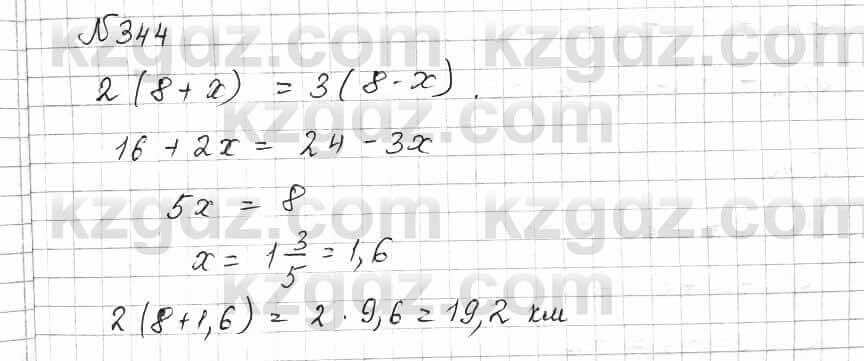 №344
2(8+x) = 3(8-x).
16 + 2x = 24 - 3x
5x = 8
x = 1 3/5 = 1,6
2(8+1,6) = 2 · 9,6 = 19,2 км
kzgdz.com kzgdz.com
kzgdz.com
kzgdz.com kzgdz.com
kzgdz.com